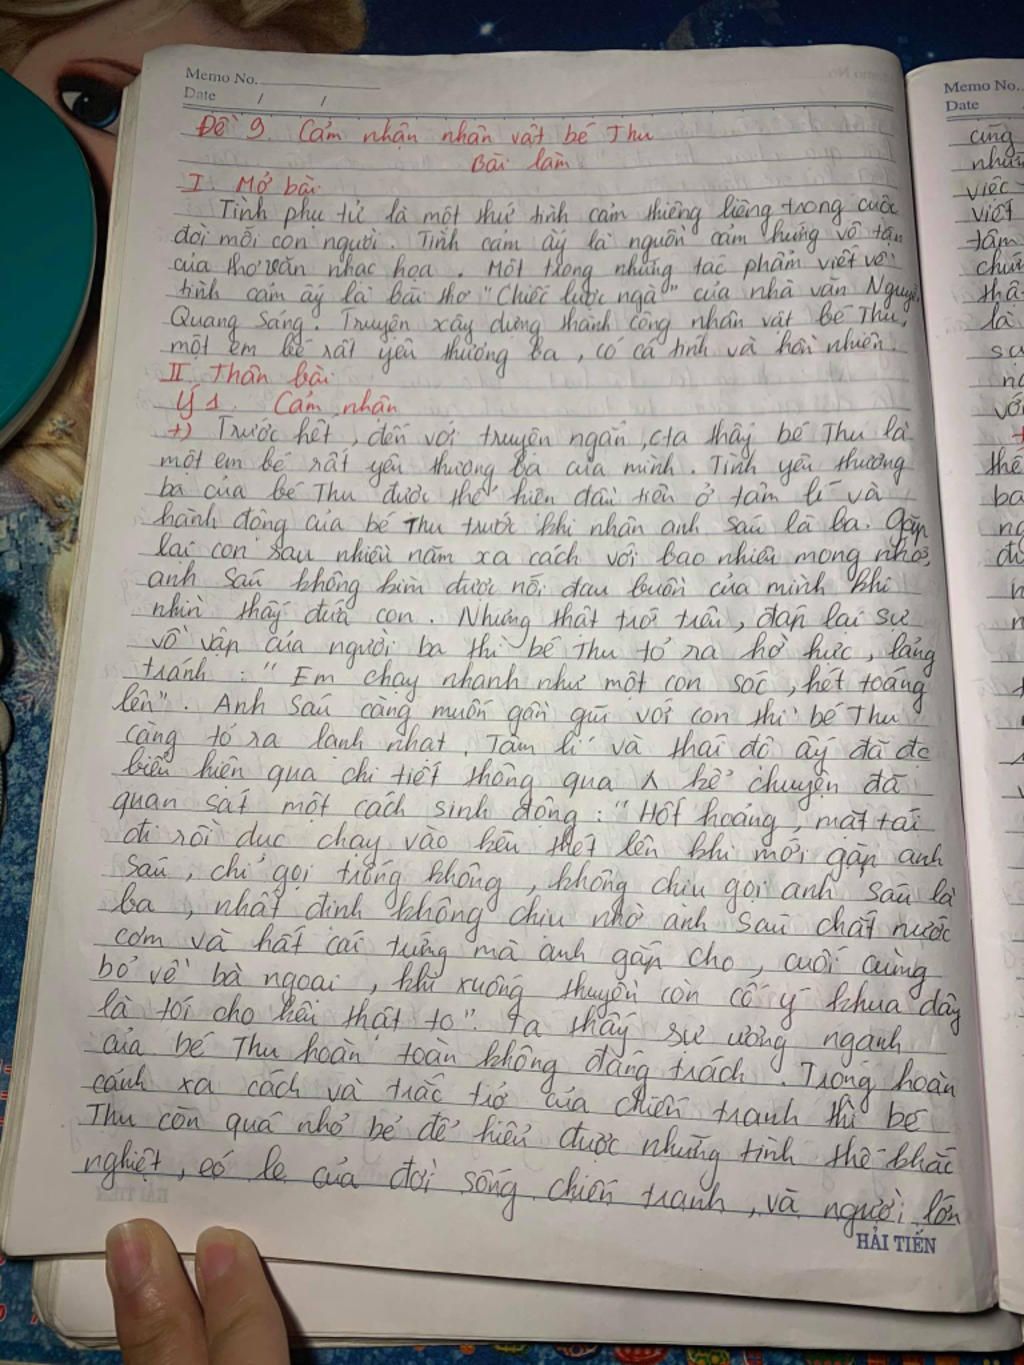 Memo No.
Date / /
Đề 9. Cảm nhận nhân vật bé Thu
Bài làm
I. Mở bài
Tình phụ tử là một thứ tình cảm thiêng liêng trong cuộc
đời mỗi con người. Tình cảm ấy là nguồn cảm hứng vô tận
của thơ văn nhạc họa. Một trong những tác phẩm viết về
tình cảm ấy là bài thơ "Chiếc lược ngà" của nhà văn Nguyễn
Quang Sáng. Truyện xây dựng thành công nhân vật bé Thu,
một em bé rất yêu thương ba, có cá tính và hồn nhiên.
II. Thân bài
Ý 1. Cảm nhận
+) Trước hết, đến với truyện ngắn, cta thấy bé Thu là
một em bé rất yêu thương ba của mình. Tình yêu thương
ba của bé Thu được thể hiện đầu tiên ở tâm lí và
hành động của bé Thu trước khi nhận anh Sáu là ba. Gặp
lại con sau nhiều năm xa cách với bao nhiêu mong nhớ,
anh Sáu không kìm được nỗi đau buồn của mình khi
nhìn thấy đứa con. Nhưng thật trớ trêu, đáp lại sự
vồ vập của người ba thì bé Thu tỏ ra hờ hực, lảng
tránh: "Em chạy nhanh như một con sóc, hét toáng
lên". Anh Sáu càng muốn gần gũi với con thì bé Thu
càng tỏ ra lạnh nhạt. Tâm lí và thái độ ấy đã đc
biểu hiện qua chi tiết thông qua kể chuyện đã
quan sát một cách sinh động: "Hốt hoảng, mặt tái
đi rồi dục chạy vào kêu thét lên khi mới gặp anh
Sáu, chỉ gọi trống không, không chịu gọi anh Sáu là
ba, nhất định không chịu nhờ anh Sáu chắt nước
cơm và hất cái trứng mà anh gắp cho, cuối cùng
bỏ về bà ngoại, khi xuống thuyền còn cố ý khua dây
là tói cho kêu thật to". Ta thấy sự ương ngạnh
của bé Thu hoàn toàn không đáng trách. Trong hoàn
cảnh xa cách và trắc trở của chiến tranh thì bé
Thu còn quá nhỏ bé để hiểu được những tình thế khắc
nghiệt, éo le của đời sống chiến tranh, và người lớn
HẢI TIẾN
Memo No.
Date
cũng
việc
viết
tâm
là
với
thế
ba